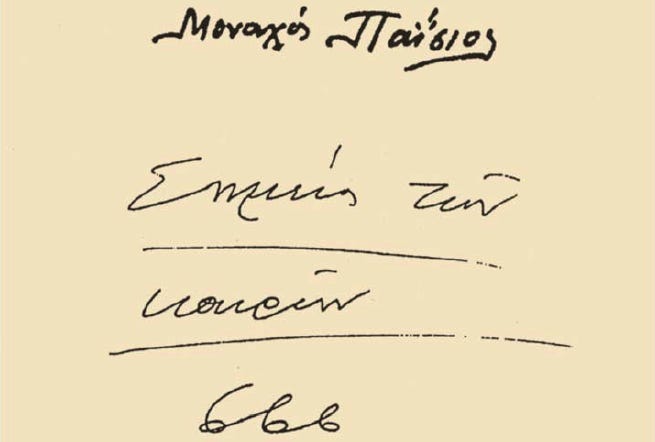 Μοναχός Παΐσιος
Σημεία τῶν
καιρῶν
666